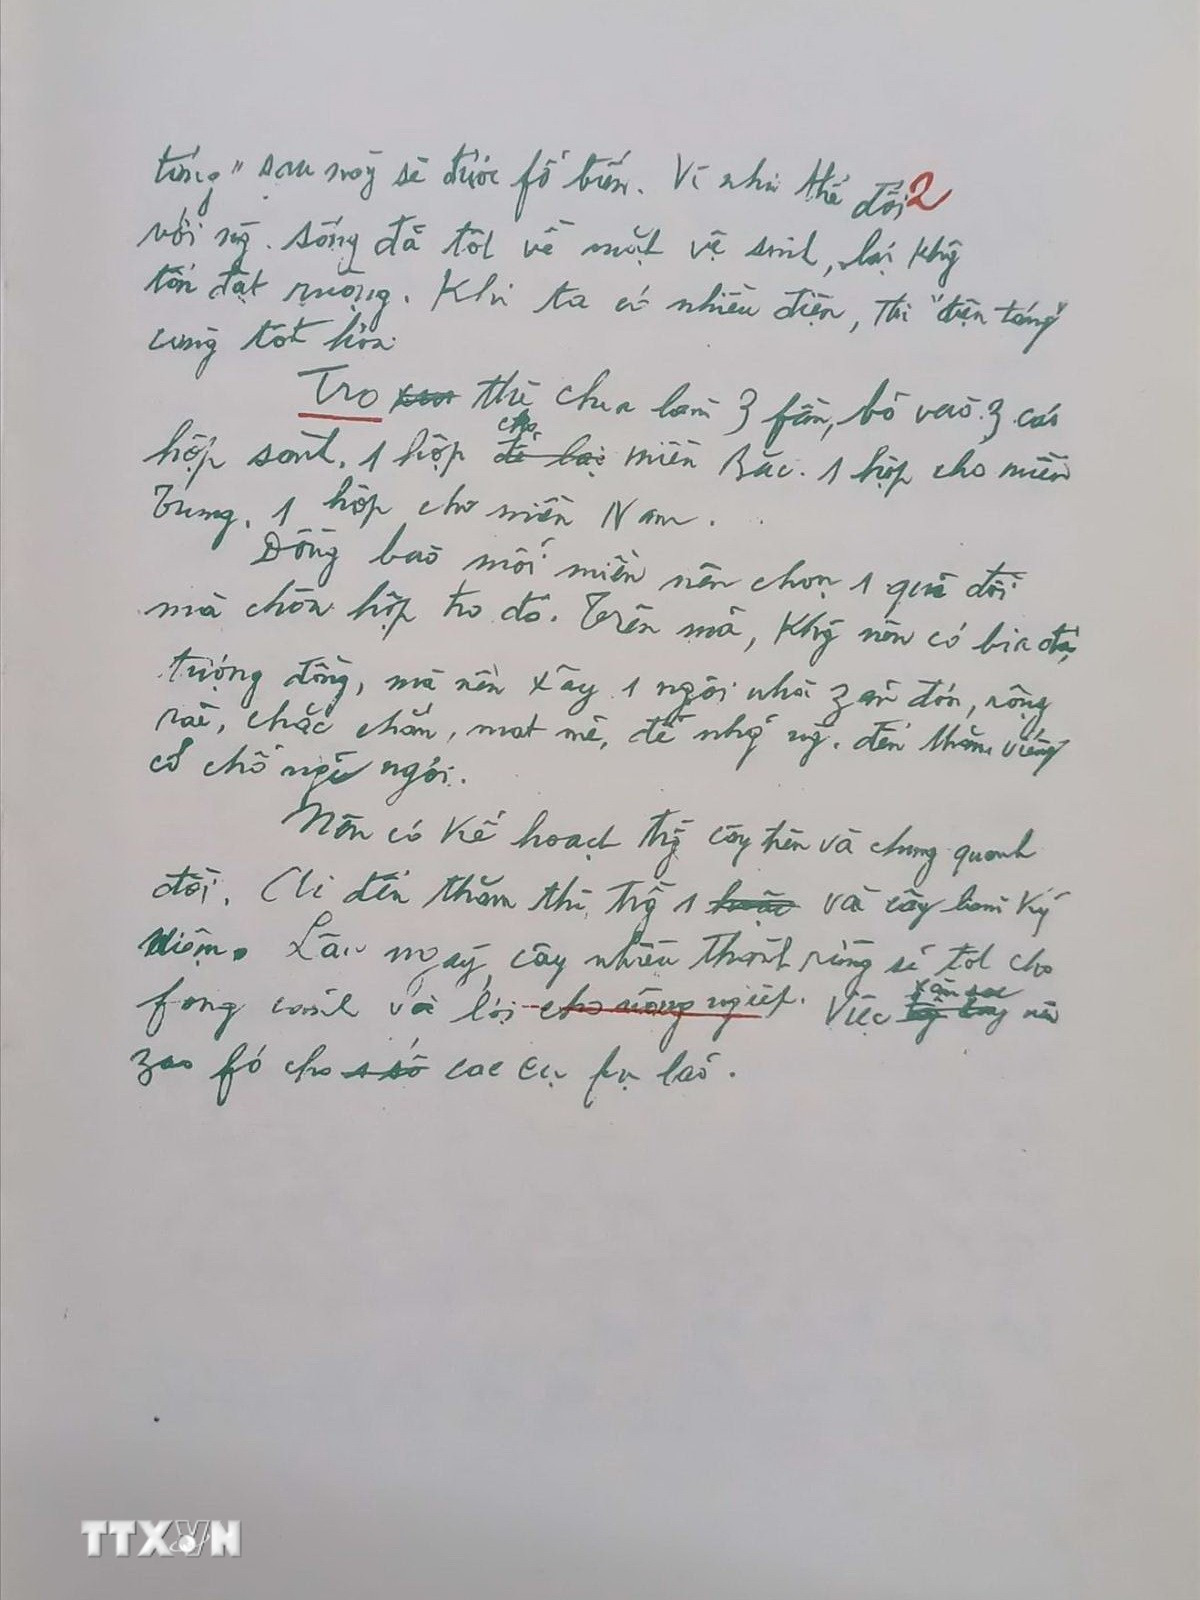 táng" sau này sẽ được fổ biến. Vì như thế đối 2
với ng. sống đã tốt về mặt vệ sinh, lại khg
tốn đất ruộng. Khi ta có nhiều điện, thì "điện táng"
càng tốt hơn.
Tro thì chia làm 3 fần, bỏ vào 3 cái
hộp sành. 1 hộp cho để lại miền Bắc. 1 hộp cho miền
Trung. 1 hộp cho miền Nam.
Đồng bào mỗi miền nên chọn 1 quả đồi
mà chôn hộp tro đó. Trên mả, khg nên có bia đá,
tượng đồng, mà nên xây 1 ngôi nhà zản đơn, rộng
rãi, chắc chắn, mát mẻ, để nhg ng. đến thăm viếng
có chỗ nghỉ ngơi.
Nên có kế hoạch trg cây trên và chung quanh
đồi. Ai đến thăm thì trg 1 hoặc vài cây làm kỷ
niệm. Lâu ngày, cây nhiều thành rừng sẽ tốt cho
fong cảnh và lợi cho nông ngiệp. Việc săn sóc nên
zao fó cho 1 số các cụ fụ lão.
TTXVN